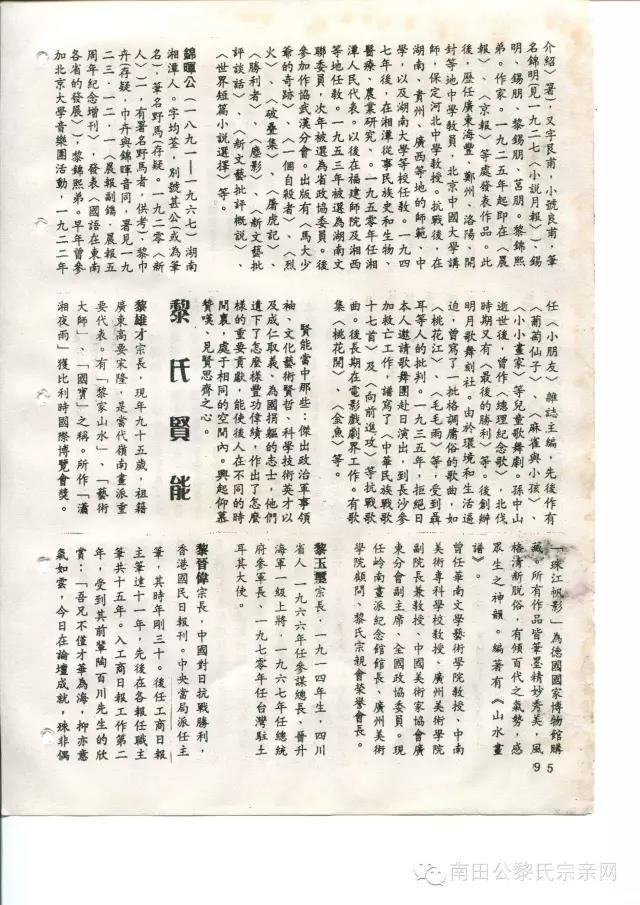 介紹〉署,又字艮甫,小號良甫,筆
名錦明(見一九二七〈小說月報〉)、錫
明、錫朋、黎錫朋、莒朋。黎錦熙
弟。作家。一九二五年起即在〈晨
報〉、〈京報〉等處發表作品。此
後,歷任廣東海豐、鄭州、洛陽、開
封等地中學教員,北京中國大學講
師,保定河北中學教員。抗戰後,在
湖南、貴州、廣西等地的師範、中
學,以及湖南大學等校任教。一九四
七年後,在湘潭從事民族史和生物、
醫療、農業研究。一九五〇年任湘
潭人民代表。以後在福建師院及湘西
等地任教。一九五三年被選為湖南文
聯委員,次年被選為省政協委員。後
參加作協武漢分會。出版有〈馬大少
爺的奇跡〉、〈一個自殺者〉、〈烈
火〉、〈破壘集〉、〈屠虎記〉、
〈勝利者〉、〈塵影〉、〈新文藝批
評談話〉、〈新文藝批評概說〉、
〈世界短篇小說選擇〉等。
錦暉公(一八九一—一九六七)湖南
湘潭人。字均荃,別號甚公(或為筆
名,筆名野馬(存疑。一九二〇〈新
人〉)一,有署名野馬者,供考)、黎巾
卉(存疑,巾卉與錦暉音同,署見一九
二三.一二.一〈晨報副鐫.晨報五
周年紀念增刊〉,發表〈國語在東南
各省的發展〉,黎錦熙弟。早年曾參
加北京大學音樂團活動,一九二二年
任〈小朋友〉雜誌主編,先後作有
〈葡萄仙子〉、〈麻雀與小孩〉、
〈小小畫家〉等兒童歌舞劇。孫中山
逝世後,曾作〈總理紀念歌〉,北伐
時期又有〈最後的勝利〉等。後創辦
明月歌舞劇社。由於環境和生活逼
迫,曾寫了一批格調庸俗的歌曲,如
〈桃花江〉、〈毛毛雨〉等,受到聶
耳等人的批判。一九三五年,拒絕日
本人邀請歌舞團赴日演出,到長沙參
加救亡工作,譜寫了〈中華民族戰歌
十七首〉及〈向前進攻〉等抗戰歌
曲。後長期在電影戲劇界工作。有歌
集〈桃花開〉、〈金魚〉等。
賢能當中那些:傑出政治軍事領
袖、文化藝術賢哲、科學技術英才以
及成仁取義、為國捐軀的志士,他們
遺下了怎麼樣豐功偉績,作出了怎麼
樣的重要貢獻,能使後人在不同的時
間裏,處于相同的空間內。興起仰慕
贊嘆、見賢思齊之心。
黎氏賢能
黎雄才宗長,現年九十五歲,祖籍
廣東高要宋隆,是當代嶺南畫派重
要代表。有「黎家山水」、「藝術
大師」、「國寶」之稱。所作「瀟
湘夜雨」獲比利時國際博覽會獎。
「珠江帆影」為德國國家博物館購
藏。所有作品皆筆墨精妙秀美,風
格清新脫俗,有傾百代之氣勢,感
眾生之神韻。編著有《山水畫
譜》。
曾任華南文學藝術學院教授、中南
美術專科學校教授、廣州美術學院
副院長兼教授、中國美術家協會廣
東分會副主席、全國政協委員。現
任岭南畫派紀念館館長、廣州美術
學院顧問、黎氏宗親會榮譽會長。
黎玉璽宗長,一九一四年生,四川
省人,一九六六年任參謀總長、晉升
海軍一級上將,一九六七年任總統
府參軍長、一九七零年任台灣駐土
耳其大使。
黎晉偉宗長,中國對日抗戰勝利,
香港國民日報刊。中央當局派任主
筆,其時年剛三十。後任工商日報
主筆達十一年,先後在各報任職主
筆共十五年。入工商日報工作第二
年,受到其前輩陶百川先生的欣
賞:「吾兄不僅才華為海,抑亦意
氣如雲,今日在論壇成就,殊非偶
95
南田公黎氏宗亲网